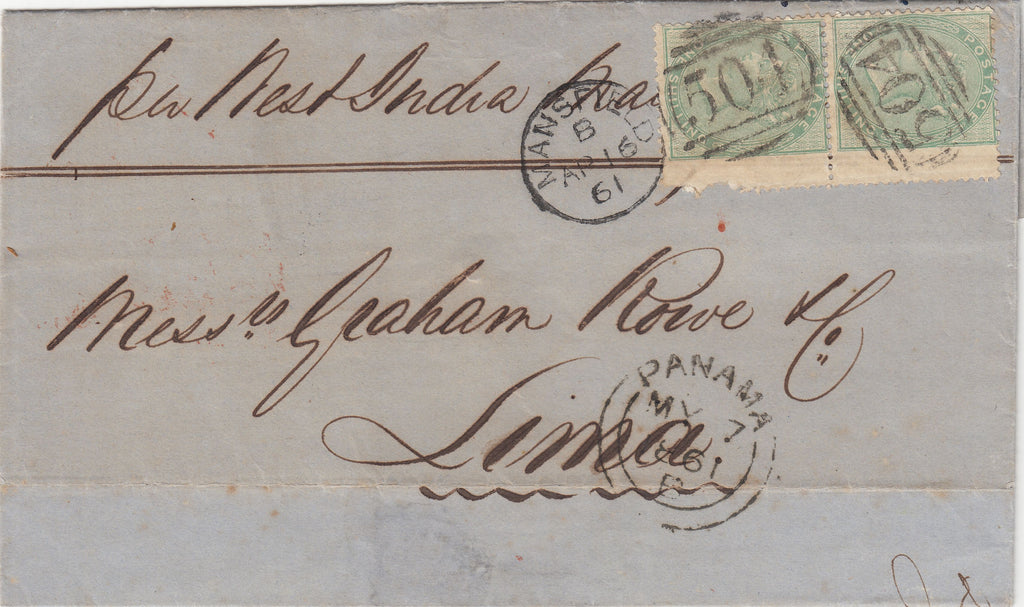 per West India Mai
MANSFIELD
B
AP 16
61
504
POSTAGE
504
POSTAGE
Mess.rs Graham Rowe & Co.
Lima.
PANAMA
MY 7
1861
B